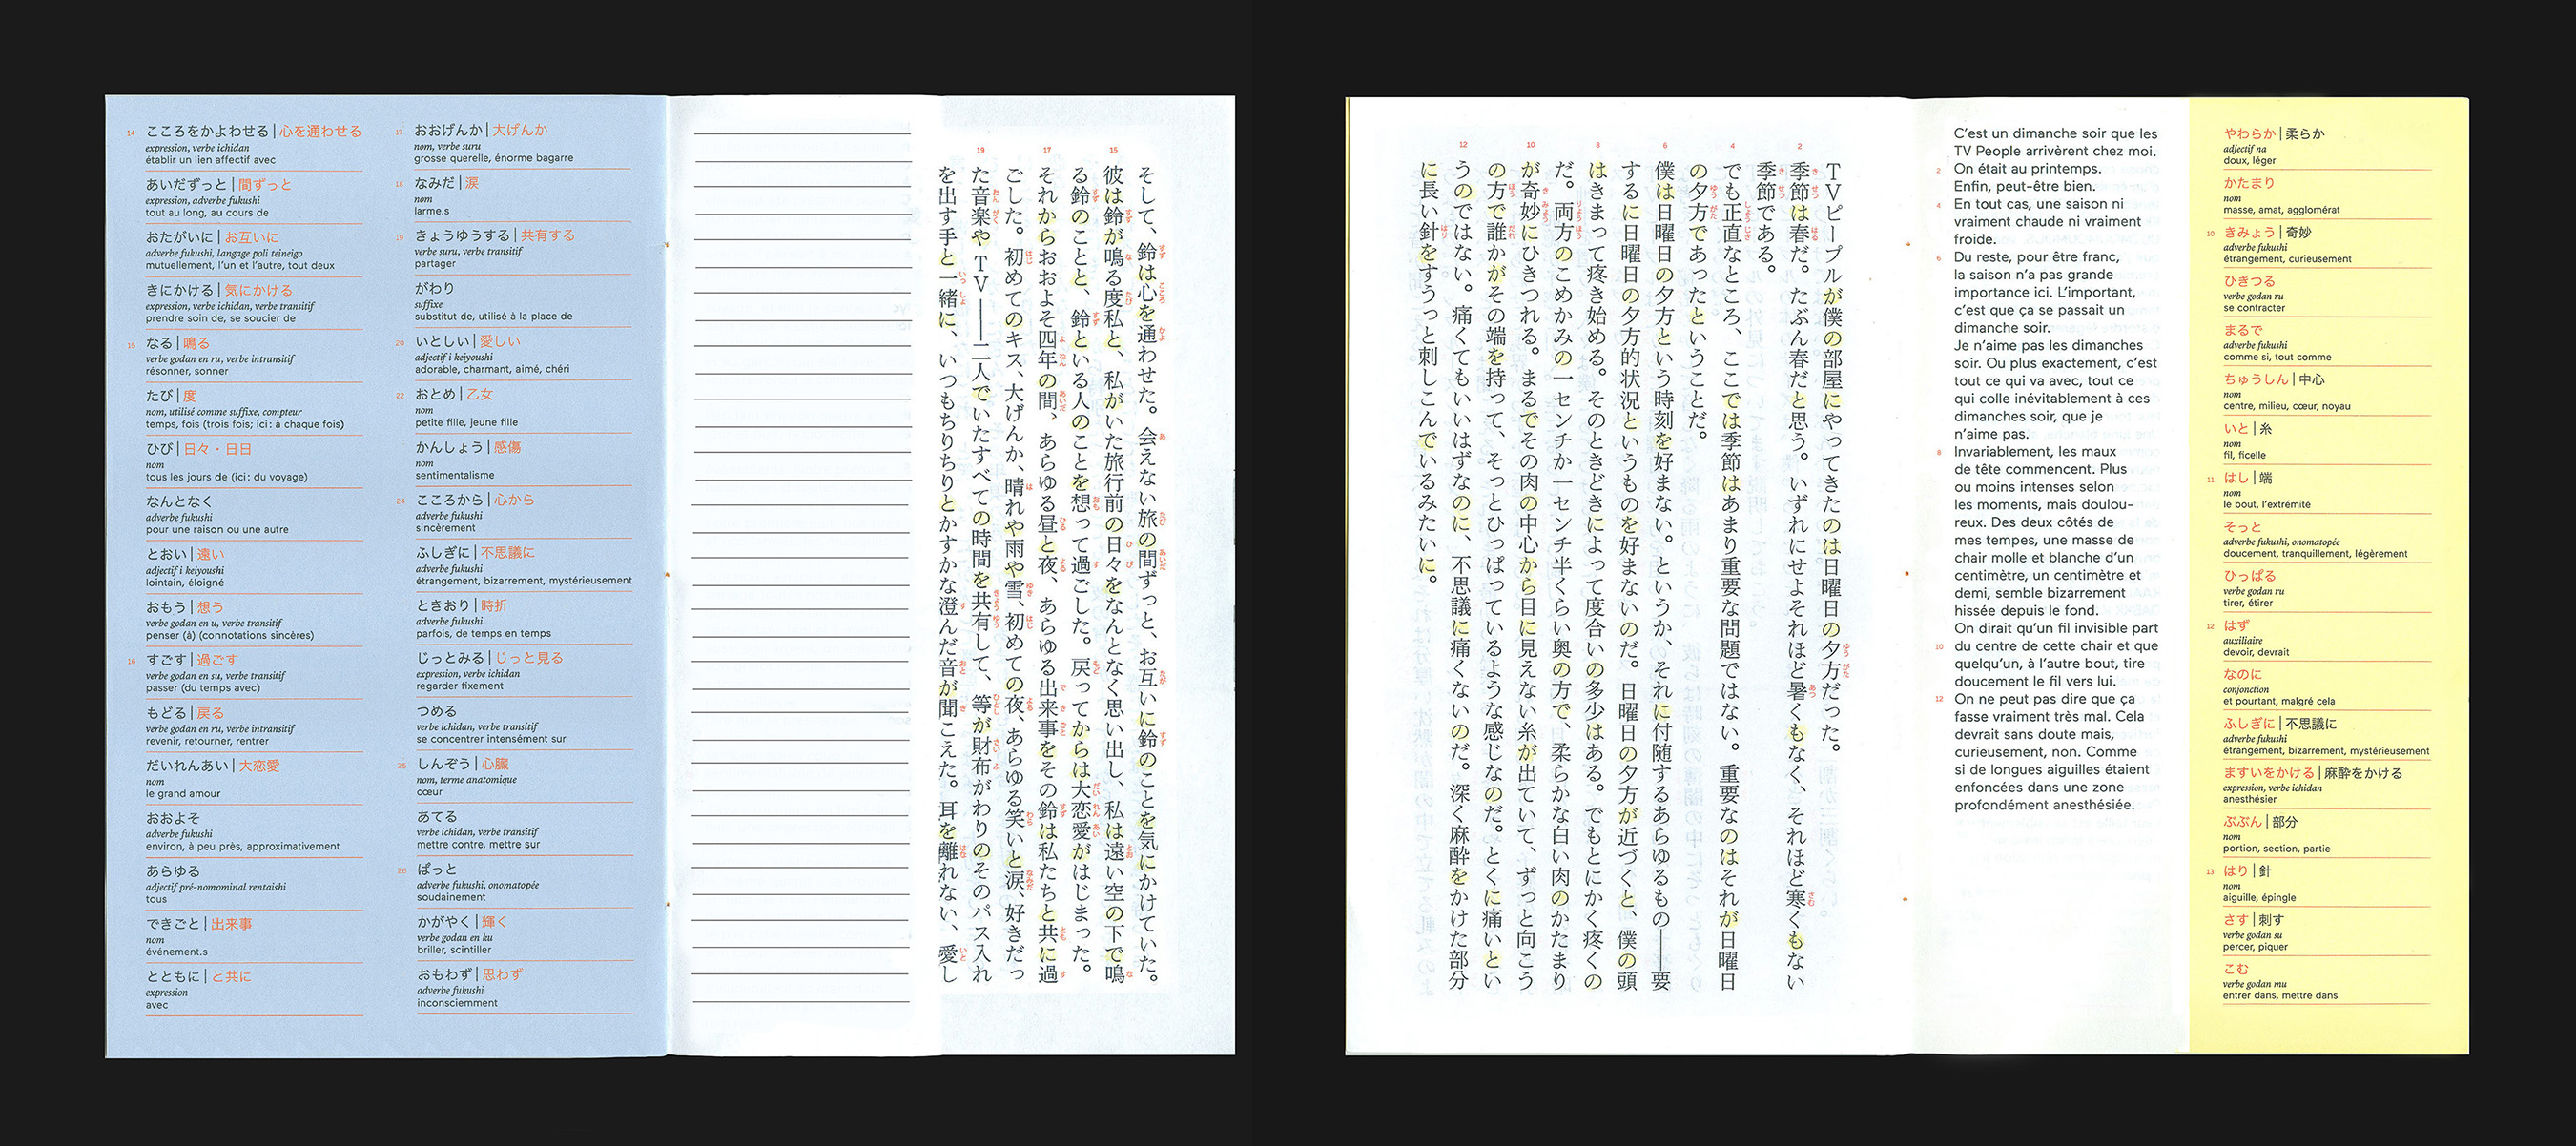 14 こころをかよわせる|心を通わせる
expression, verbe ichidan
établir un lien affectif avec
あいだずっと|間ずっと
expression, adverbe fukushi
tout au long, au cours de
おたがいに|お互いに
adverbe fukushi, langage poli teineigo
mutuellement, l'un et l'autre, tout deux
きにかける|気にかける
expression, verbe ichidan, verbe transitif
prendre soin de, se soucier de
15 なる|鳴る
verbe godan en ru, verbe intransitif
résonner, sonner
たび|度
nom, utilisé comme suffixe, compteur
temps, fois (trois fois; ici: à chaque fois)
ひび|日々・日日
nom
tous les jours de (ici: du voyage)
なんとなく
adverbe fukushi
pour une raison ou une autre
とおい|遠い
adjectif i keiyoushi
lointain, éloigné
おもう|想う
verbe godan en u, verbe transitif
penser (à) (connotations sincères)
16 すごす|過ごす
verbe godan en su, verbe transitif
passer (du temps avec)
もどる|戻る
verbe godan en ru, verbe intransitif
revenir, retourner, rentrer
だいれんあい|大恋愛
nom
le grand amour
おおよそ
adverbe fukushi
environ, à peu près, approximativement
あらゆる
adjectif pré-nomominal rentaishi
tous
できごと|出来事
nom
événement.s
とともに|と共に
expression
avec
17 おおげんか|大げんか
nom, verbe suru
grosse querelle, énorme bagarre
18 なみだ|涙
nom
larme.s
19 きょうゆうする|共有する
verbe suru, verbe transitif
partager
がわり
suffixe
substitut de, utilisé à la place de
20 いとしい|愛しい
adjectif i keiyoushi
adorable, charmant, aimé, chéri
22 おとめ|乙女
nom
petite fille, jeune fille
かんしょう|感傷
nom
sentimentalisme
24 こころから|心から
adverbe fukushi
sincèrement
ふしぎに|不思議に
adverbe fukushi
étrangement, bizarrement, mystérieusement
ときおり|時折
adverbe fukushi
parfois, de temps en temps
じっとみる|じっと見る
expression, verbe ichidan
regarder fixement
つめる
verbe ichidan, verbe transitif
se concentrer intensément sur
25 しんぞう|心臓
nom, terme anatomique
cœur
あてる
verbe ichidan, verbe transitif
mettre contre, mettre sur
26 ぱっと
adverbe fukushi, onomatopée
soudainement
かがやく|輝く
verbe godan en ku
briller, scintiller
おもわず|思わず
adverbe fukushi
inconsciemment
そして、鈴は心を通わせた。会えない旅の間ずっと、お互いに鈴のことを気にかけていた。
15
彼は鈴が鳴る度私と、私がいた旅行前の日々をなんとなく思い出し、私は遠い空の下で鳴
る鈴のことと、鈴といる人のことを想って過ごした。戻ってからは大恋愛がはじまった。
17
それからおおよそ四年の間、あらゆる昼と夜、あらゆる出来事をその鈴は私たちと共に過
ごした。初めてのキス、大げんか、晴れや雨や雪、初めての夜、あらゆる笑いと涙、好きだっ
19
た音楽やTV――二人でいたすべての時間を共有して、等が財布がわりのそのパス入れ
を出す手と一緒に、いつもちりちりとかすかな澄んだ音が聞こえた。耳を離れない、愛し
TVピープルが僕の部屋にやってきたのは日曜日の夕方だった。
2
季節は春だ。たぶん春だと思う。いずれにせよそれほど暑くもなく、それほど寒くもない
季節である。
4
でも正直なところ、ここでは季節はあまり重要な問題ではない。重要なのはそれが日曜日
の夕方であったということだ。
6
僕は日曜日の夕方という時刻を好まない。というか、それに付随するあらゆるもの――要
するに日曜日の夕方的状況というものを好まないのだ。日曜日の夕方が近づくと、僕の頭
8
はきまって疼き始める。そのときどきによって度合いの多少はある。でもとにかく疼くの
だ。両方のこめかみの一センチか一センチ半くらい奥の方で、柔らかな白い肉のかたまり
10
が奇妙にひきつれる。まるでその肉の中心から目に見えない糸が出ていて、ずっと向こう
の方で誰かがその端を持って、そっとひっぱっているような感じなのだ。とくに痛いとい
12
うのではない。痛くてもいいはずなのに、不思議に痛くないのだ。深く麻酔をかけた部分
に長い針をすうっと刺しこんでいるみたいに。
C'est un dimanche soir que les
TV People arrivèrent chez moi.
2 On était au printemps.
Enfin, peut-être bien.
4 En tout cas, une saison ni
vraiment chaude ni vraiment
froide.
6 Du reste, pour être franc,
la saison n'a pas grande
importance ici. L'important,
c'est que ça se passait un
dimanche soir.
Je n'aime pas les dimanches
soir. Ou plus exactement, c'est
tout ce qui va avec, tout ce
qui colle inévitablement à ces
dimanches soir, que je
n'aime pas.
8 Invariablement, les maux
de tête commencent. Plus
ou moins intenses selon
les moments, mais doulou-
reux. Des deux côtés de
mes tempes, une masse de
chair molle et blanche d'un
centimètre, un centimètre et
demi, semble bizarrement
hissée depuis le fond.
On dirait qu'un fil invisible part
10 du centre de cette chair et que
quelqu'un, à l'autre bout, tire
doucement le fil vers lui.
12 On ne peut pas dire que ça
fasse vraiment très mal. Cela
devrait sans doute mais,
curieusement, non. Comme
si de longues aiguilles étaient
enfoncées dans une zone
profondément anesthésiée.
やわらか|柔らか
adjectif na
doux, léger
かたまり
nom
masse, amat, agglomérat
10 きみょう|奇妙
adverbe fukushi
étrangement, curieusement
ひきつる
verbe godan ru
se contracter
まるで
adverbe fukushi
comme si, tout comme
ちゅうしん|中心
nom
centre, milieu, cœur, noyau
いと|糸
nom
fil, ficelle
11 はし|端
nom
le bout, l'extrémité
そっと
adverbe fukushi, onomatopée
doucement, tranquillement, légèrement
ひっぱる
verbe godan ru
tirer, étirer
12 はず
auxiliaire
devoir, devrait
なのに
conjonction
et pourtant, malgré cela
ふしぎに|不思議に
adverbe fukushi
étrangement, bizarrement, mystérieusement
ますいをかける|麻酔をかける
expression, verbe ichidan
anesthésier
ぶぶん|部分
nom
portion, section, partie
13 はり|針
nom
aiguille, épingle
さす|刺す
verbe godan su
percer, piquer
こむ
verbe godan mu
entrer dans, mettre dans